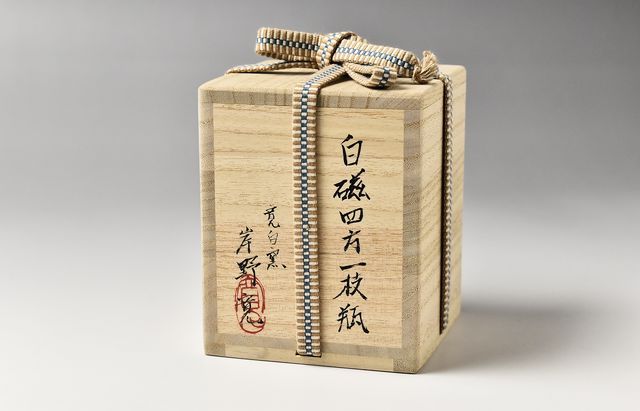 白磁四方一枝瓶
寛白窯
岸野寛